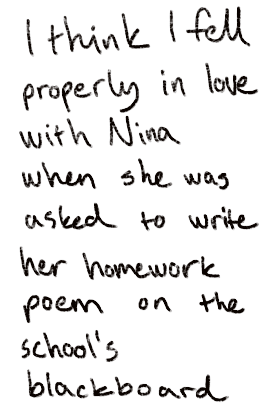 I think I fell
properly in love
with Nina
when she was
asked to write
her homework
poem on the
school's
blackboard